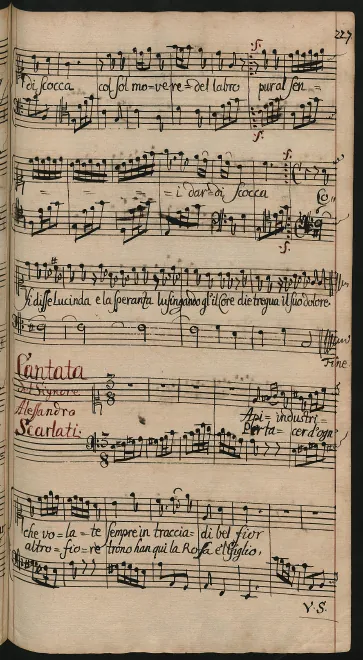 227
.S.
di scocca col sol mo=ve=re=del labro pur al sen =
.S.
.S.
= = = = i dar=di scocca
.S.
disse Lucinda e la speranza lusingando gl'il Core die tregua il suo dolore.
Fine
Cantata
Del Signore
Alessandro
Scarlati:
Api= industri=
Perta= cer d'ogn'
che vo=la=te sempre in traccia= di bel fior
altro=fio=re trono han qui la Rosa e'l Giglio,
V.S.